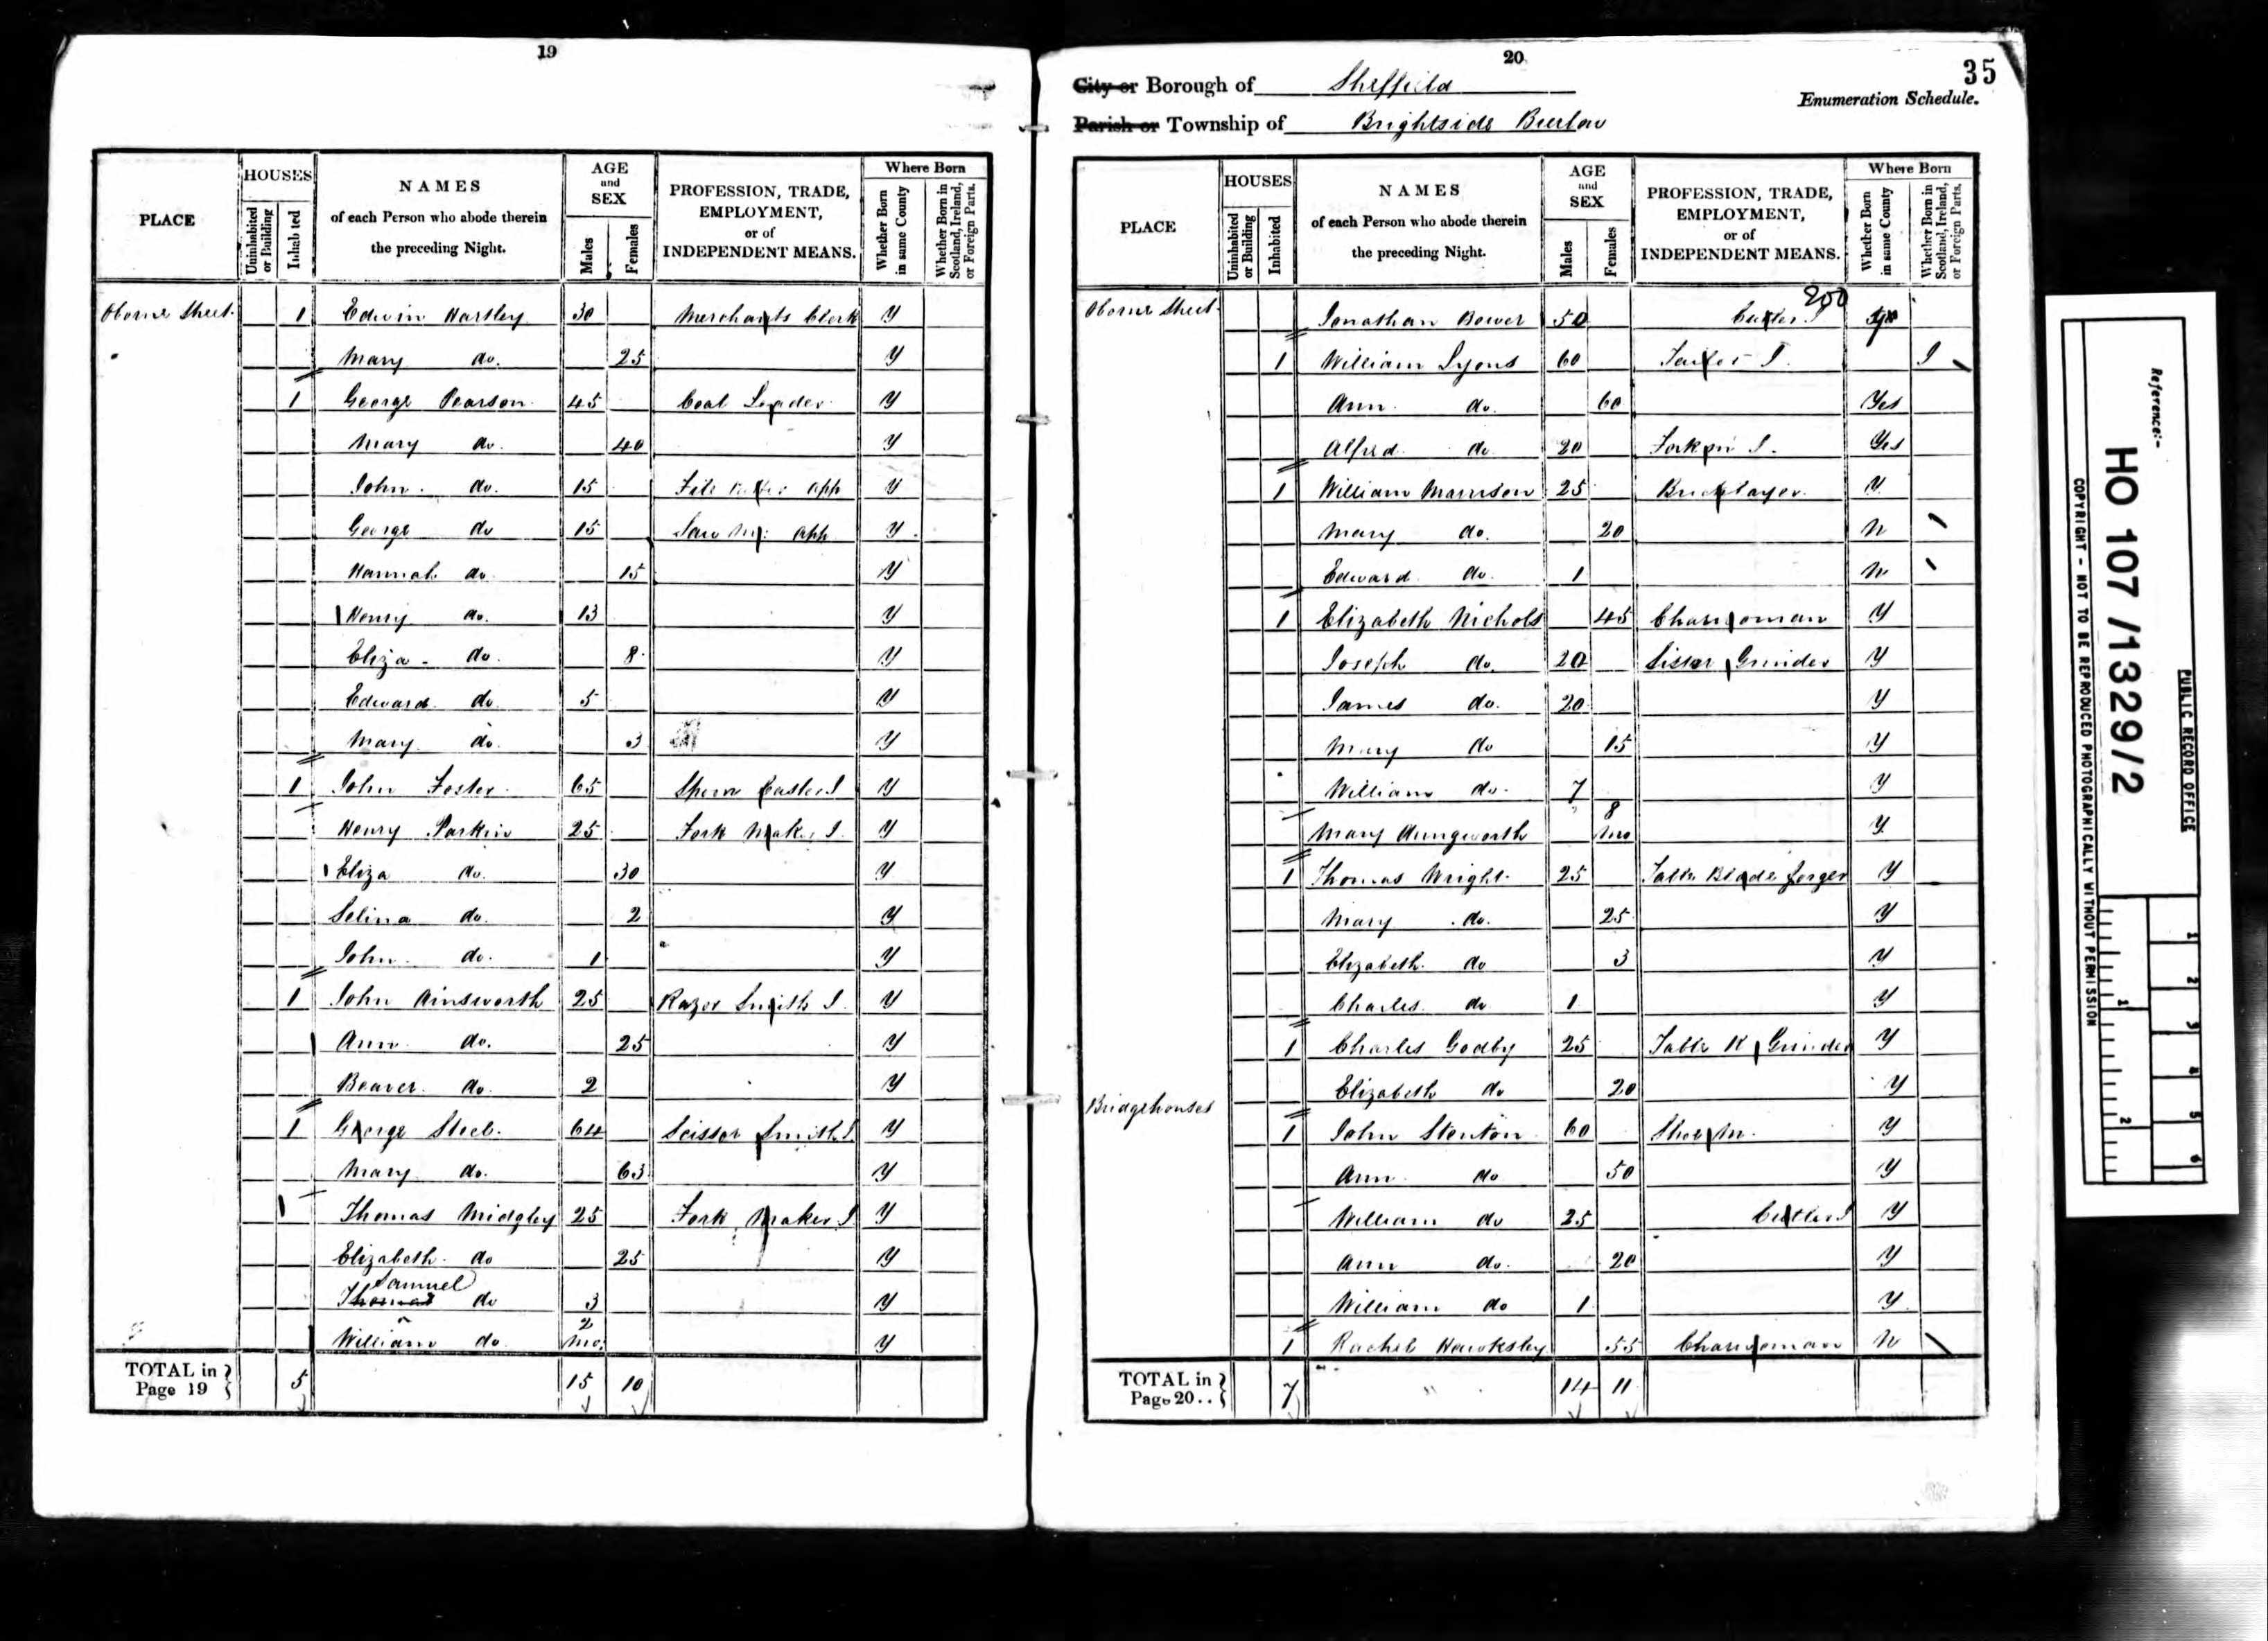 19
PLACE
HOUSES
Uninhabited or Building
Inhabited
NAMES
of each Person who abode therein
the preceding Night.
AGE
and
SEX
Males
Females
PROFESSION, TRADE,
EMPLOYMENT,
or of
INDEPENDENT MEANS.
Where Born
Whether Born in same County
Whether Born in Scotland, Ireland, or Foreign Parts.
Oborne Street 1 Edwin Hartley 30 Merchants Clerk y
Mary do. 25 y
1 George Pearson 45 Coal Leader y
Mary do. 40 y
John do. 15 File app y
George do 15 Saw M: app y
Hannah do 15 y
Henry do. 13 y
Eliza do. 8 y
Edward do 5 y
Mary do. 3 y
1 John Foster 65 Caster J y
Henry Parkin 25 Fork Maker J. y
Eliza do. 30 y
Selina do. 2 y
John do. 1 y
1 John Ainsworth 25 Razor Smith J. y
Ann do. 25 y
Beaver do. 2 y
1 George Steel 64 Scissor Smith J. y
Mary do. 63 y
1 Thomas Midgley 25 Fork Maker J y
Elizabeth do 25 y
Samuel
Thomas do 3 y
William do. 2 mo. y
TOTAL in Page 19 5 15 10
20
35
City or Borough of Sheffield
Enumeration Schedule.
Parish or Township of Brightside Bierlow
PLACE
HOUSES
Uninhabited or Building
Inhabited
NAMES
of each Person who abode therein
the preceding Night.
AGE
and
SEX
Males
Females
PROFESSION, TRADE,
EMPLOYMENT,
or of
INDEPENDENT MEANS.
Where Born
Whether Born in same County
Whether Born in Scotland, Ireland, or Foreign Parts.
200
Oborne Street Jonathan Bower 50 Cutler J Yes
1 William Lyons 60 Tailor J. I
Ann do. 60 Yes
Alfred do 20 J. Yes
1 William Marrison 25 Bricklayer y
Mary do. 20 N
Edward do. 1 N
1 Elizabeth Nichols 45 Charwoman y
Joseph do. 20 Grinder y
James do. 20 y
Mary do 15 y
William do. 7 y
Mary Dungworth 8 mo y
1 Thomas Wright 25 Table Blade forger y
Mary do. 25 y
Elizabeth do 3 y
Charles do 1 y
1 Charles Godby 25 Table K Grinder y
Elizabeth do 20 y
Bridgehouses 1 John Stenton 60 Shoe M. y
Ann do 50 y
William do 25 Cutler J y
Ann do. 20 y
William do 1 y
1 Rachel Hawksley 55 Charwoman N
TOTAL in Page 20.. 7 14 11
Reference:-
HO 107 /1329/2
PUBLIC RECORD OFFICE
COPYRIGHT - NOT TO BE REPRODUCED PHOTOGRAPHICALLY WITHOUT PERMISSION
1
2
1
2
3
4
5
6